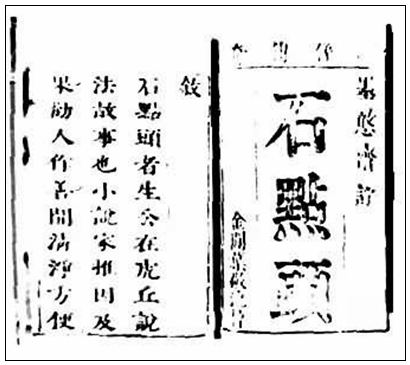 墨憨齋評
石點頭
金閶葉敬池
敍
石點頭者生公在虎丘說
法故事也小說家推因及
果勸人作善開清淨方便